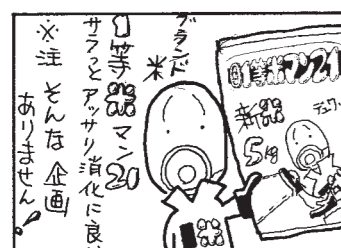 ブランド
米
1等米マン20
サラっとアッサリ消化に良
※注 そんな企画
ありません!
新米
5kg
米